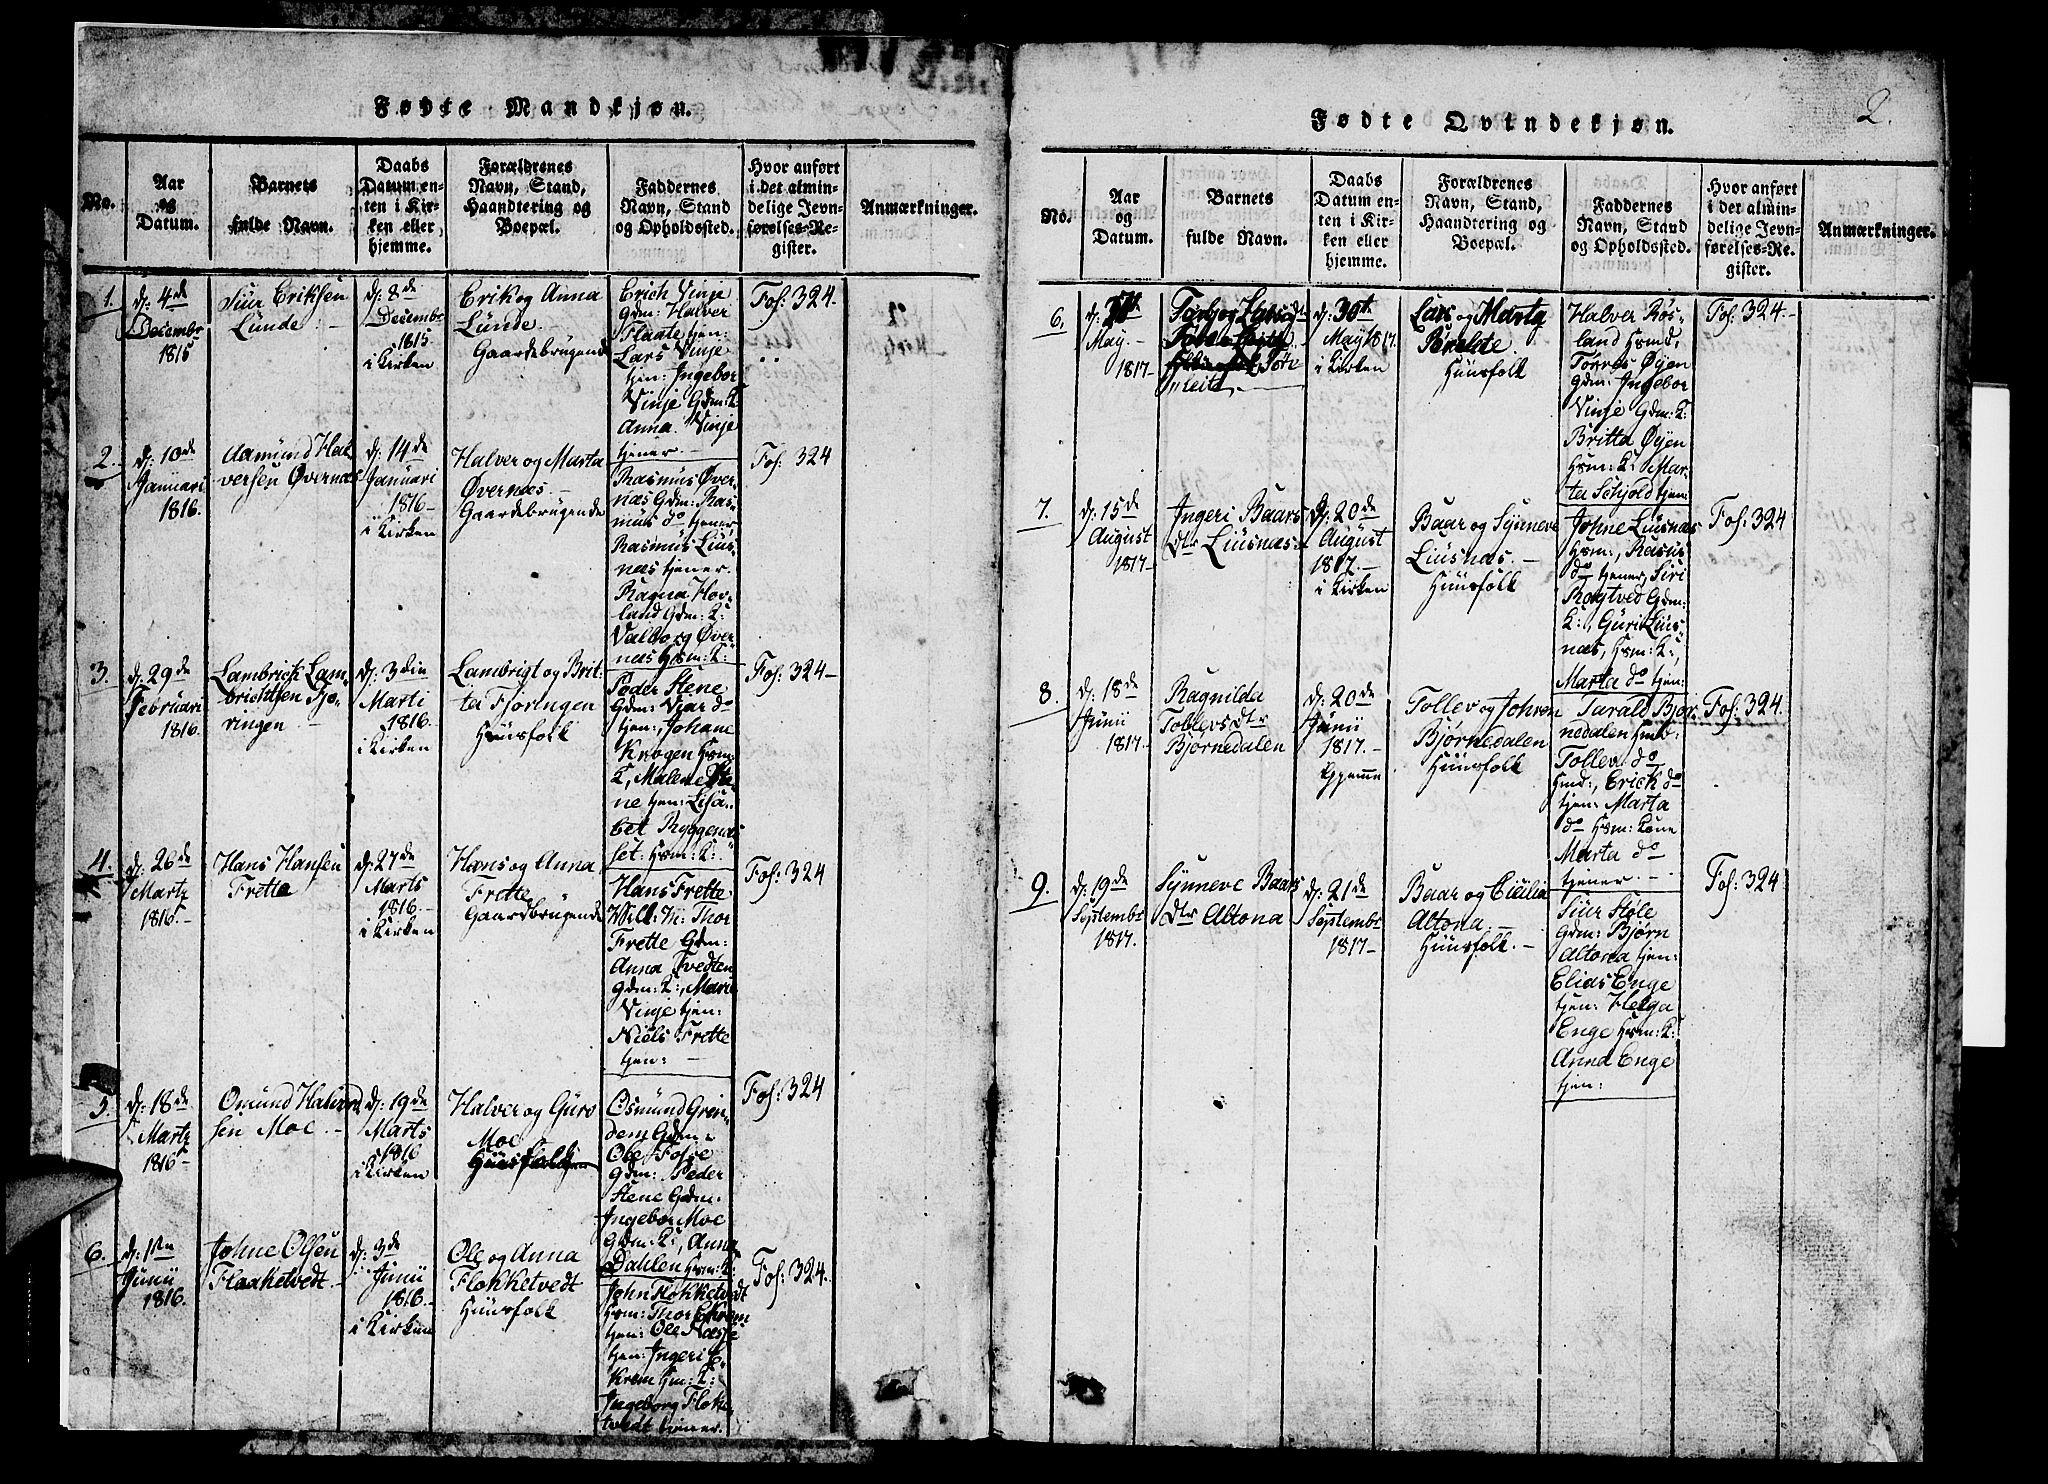 Fødte Mandkjøn.
No.
Aar
og
Datum.
Barnets
fulde Navn.
Daabs
Datum en-
ten i Kir-
ken eller
hjemme.
Forældrenes
Navn, Stand,
Haandtering og
Boepæl.
Faddernes
Navn, Stand
og Opholdssted.
Hvor anført
i det almin-
delige Jevn-
førelses-Re-
gister.
Anmærkninger.
1.
d: 4de
Decembr
1815
Siur Eriksen
Lunde.
d: 8de
Decembr
1815.
i Kirken
Erik og Anna
Lunde.
Gaardebrugende
Erich Vinje
Gdm: Halver
Flaate tjen:
Lars Vinje
tjen: Ingebor
Vinje Gdm: K:
Anna Vinje
tjener.
Fol: 324.
2.
d: 10de
Januari
1816.
Aamund Hal-
versen Øvernæs
d: 14de
Januari
1816
i Kirken
Halver og Marta
Øvernæs.
Gaardebrugende
Rasmus Øver-
næs Gdm: Ras-
mus do tjener
Rasmus Lius-
næs tjener.
Ragna Hov-
land Gdm: K:
Valborg Øver-
næs Hsm: K:
Fol: 324
3.
d: 29de
Februari
1816.
Lambrick Lam-
brichtsen Fjø-
ringen
d: 3die
Marti
1816
i Kirken
Lambrigt og Brit-
ta Fjøringen
Huusfolk
Peder Stene
Gdm: Ivar do
tjen:, Johane
Krogen Hsm:
K, Malene Ste-
ne tjen: Lisa-
bet Byggenæs-
set: Hsm: K:
Fol: 324
4.
d: 26de
Martz
1816
Hans Hansen
Frette
d: 27de
Marts
1816.
i Kirken
Hans og Anna
Frette
Gaardbrugende
Hans Frette
Thor
Frette Gdm:
Anna Tvedten
Gdm: K:, Marie
Vinje tjen:
Niels Frette
tjen:
Fol: 324
5.
d: 18de
Martz
1816
Omund Halvor-
sen Moe
d: 19de
Marts
1816
i Kirken
Halver og Guro
Moe
Huusfolk
Osmund Grin-
dem Gdm:
Ole Fosse
Gdm: Peder
Stene Gdm:
Ingebor Moe
Gdm: K:, Anna
Dahlen Hsm: K:
Fol: 324
6.
d: 1ten
Junii
1816.
Johne Olsen
Flaaketvedt
d: 3de
Junii
1816
i Kirken
Ole og Anna
Flokketvedt
Huusfolk
John Flokketvedt
Hsm: Thor Ekrem
tjen: Ole Næsse
tjen: Ingeri E-
krem Hsm: K:
Ingeborg Flok-
tvedt tjener.
Fol: 324.
2.
Fødte Qvindekjøn.
No.
Aar
og
Datum.
Barnets
fulde Navn.
Daabs
Datum en-
ten i Kir-
ken eller
hjemme.
Forældrenes
Navn, Stand,
Haandtering og
Boepæl.
Faddernes
Navn, Stand
og Opholdssted.
Hvor anført
i det almin-
delige Jevn-
førelses-Re-
gister.
Anmærkninger.
6.
May.
1817
d: 30te
May 1817.
i Kirken
Lars og Marta
Huusfolk
Halver Røs-
land Hsmd,
Torres Øyen
Gdm: Ingebor
Vinje Gdm: K:
Britta Øyen
Hsm: K: Mar-
ta Schjold tjen:
Fol: 324
7.
d: 15de
August
1817
Ingeri Baars
dtr Liusnæs
d: 20de
August
1817.
i Kirken
Baar og Synneve
Liusnæs.
Huusfolk
Johne Liusnæs
Hsm:, Rasus
do tjener, Siri
Rogtved Gdm:
K:, Guri Lius-
næs, Hsm: K:,
Marta do tjen:
Fol: 324
8.
d: 18de
Junii
1817
Ragnilda
Tollevsdtr
Bjørnedalen
d: 20de
Junii
1817.
hjemme
Tollev og Johren
Bjørnedalen
Huusfolk
Tarald Bjør-
nedalen Hsmd:
Tollev do
Hsmd:, Erick do
tjen: Marta
do Hsm: Kone
Marta do
tjener.
Fol: 324.
9.
d: 19de
Septembr
1817.
Synneve Baars
dtr Altona
d: 21de
Septembr
1817
Baar og Cicilia
Altona.
Huusfolk.
Siur Støle
Gdm: Bjørn
Altona tjen:
Elias Enge
tjen: Helga
Enge Hsm: K:
Anna Enge
tjen:
Fol: 324